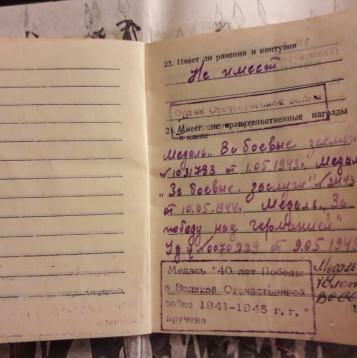 23. Имеет ли ранения и контузии
Не имеет
Орден Отечественной войны
Имеет ли правительственные награды
и какие
Медаль „За боевые
от 1.05.1943, Медаль
"За боевые заслуги"
от 10.05.1944, Медаль „За
победу над германией"
Уд от 9.05.1945
Медаль "40 лет Победы
в Великой Отечественной
войне 1941-1945 г.г."
вручена